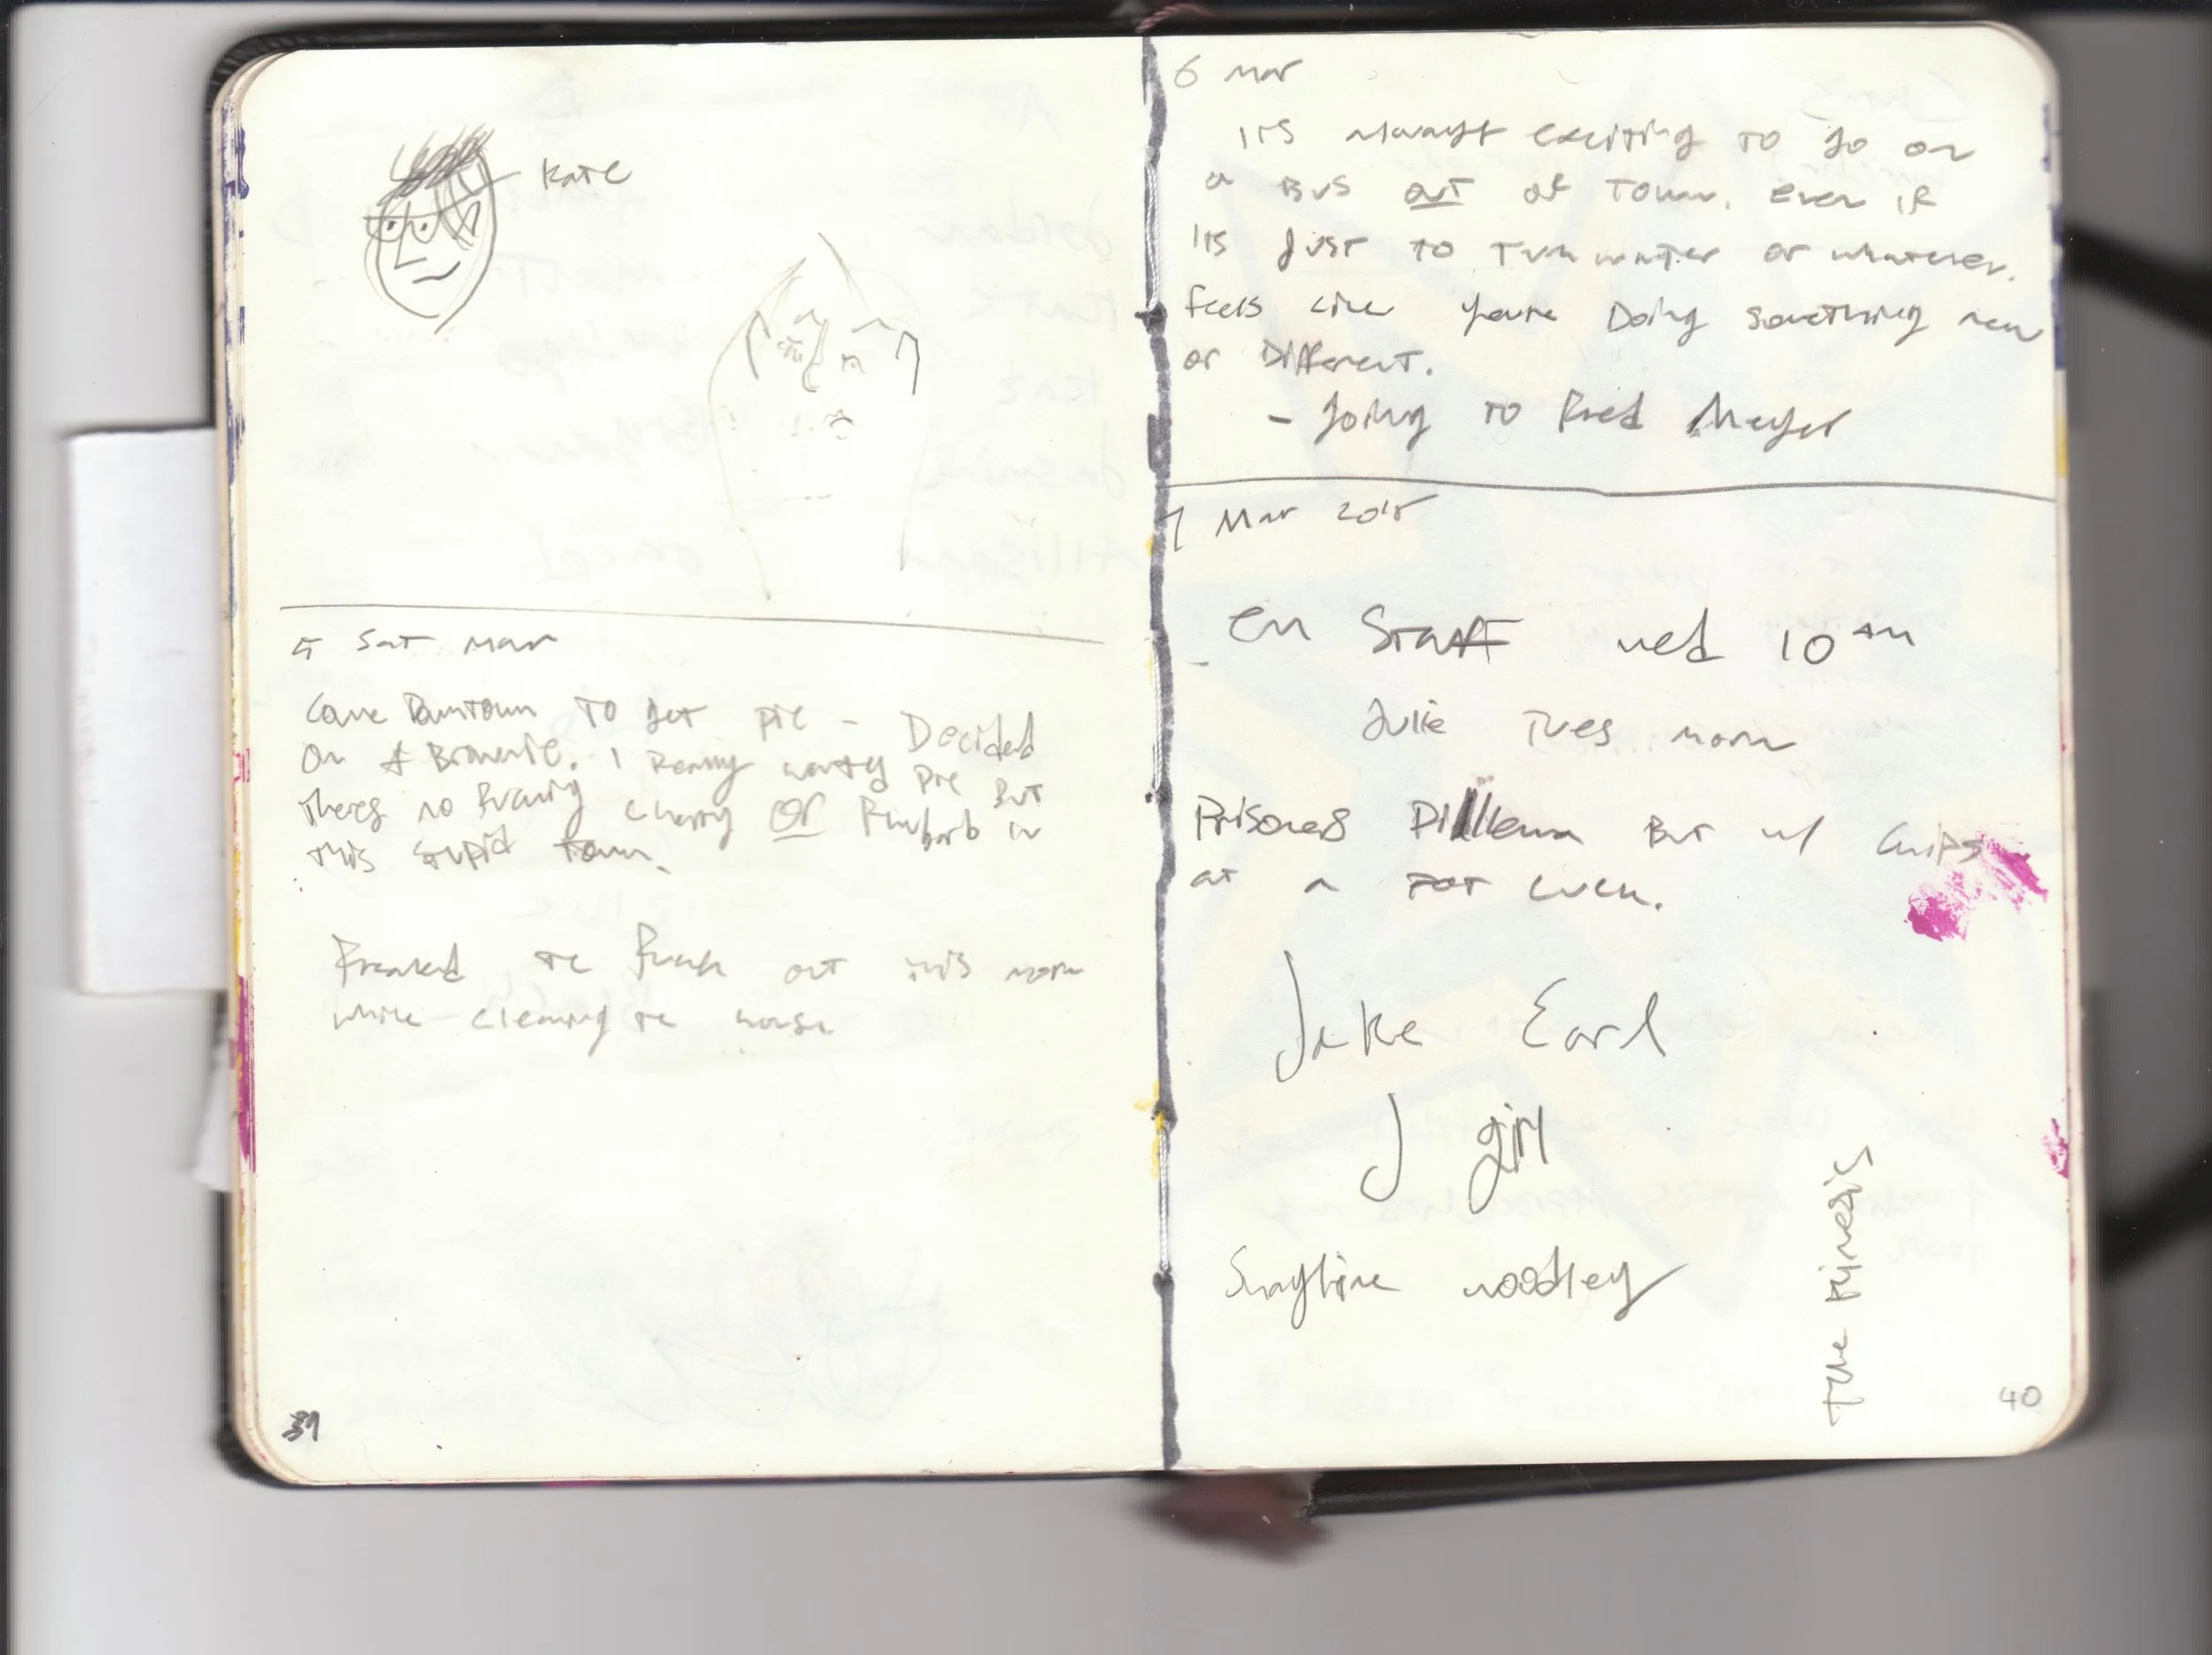 Kate
5 Sat Mar
Came Downtown to get pie - Decided
on A Brownie. I Really want pie But
theres no Fucking cherry or Rhubarb in
this stupid town.
Freaked the fuck out this morn
while cleaning the house
39
6 Mar
its always exciting to go on
a Bus out of Town. Even if
its just to Tumwater or whatever.
feels like youre Doing something new
or Different.
- going to Fred Meyer
7 Mar
Staff wed 10 am
Julie Tues morn
Prisoners Dillema But w/ Chips
at a Pot luck.
Jake Earl
J girl
Shayline woodley
The Kinesis
40